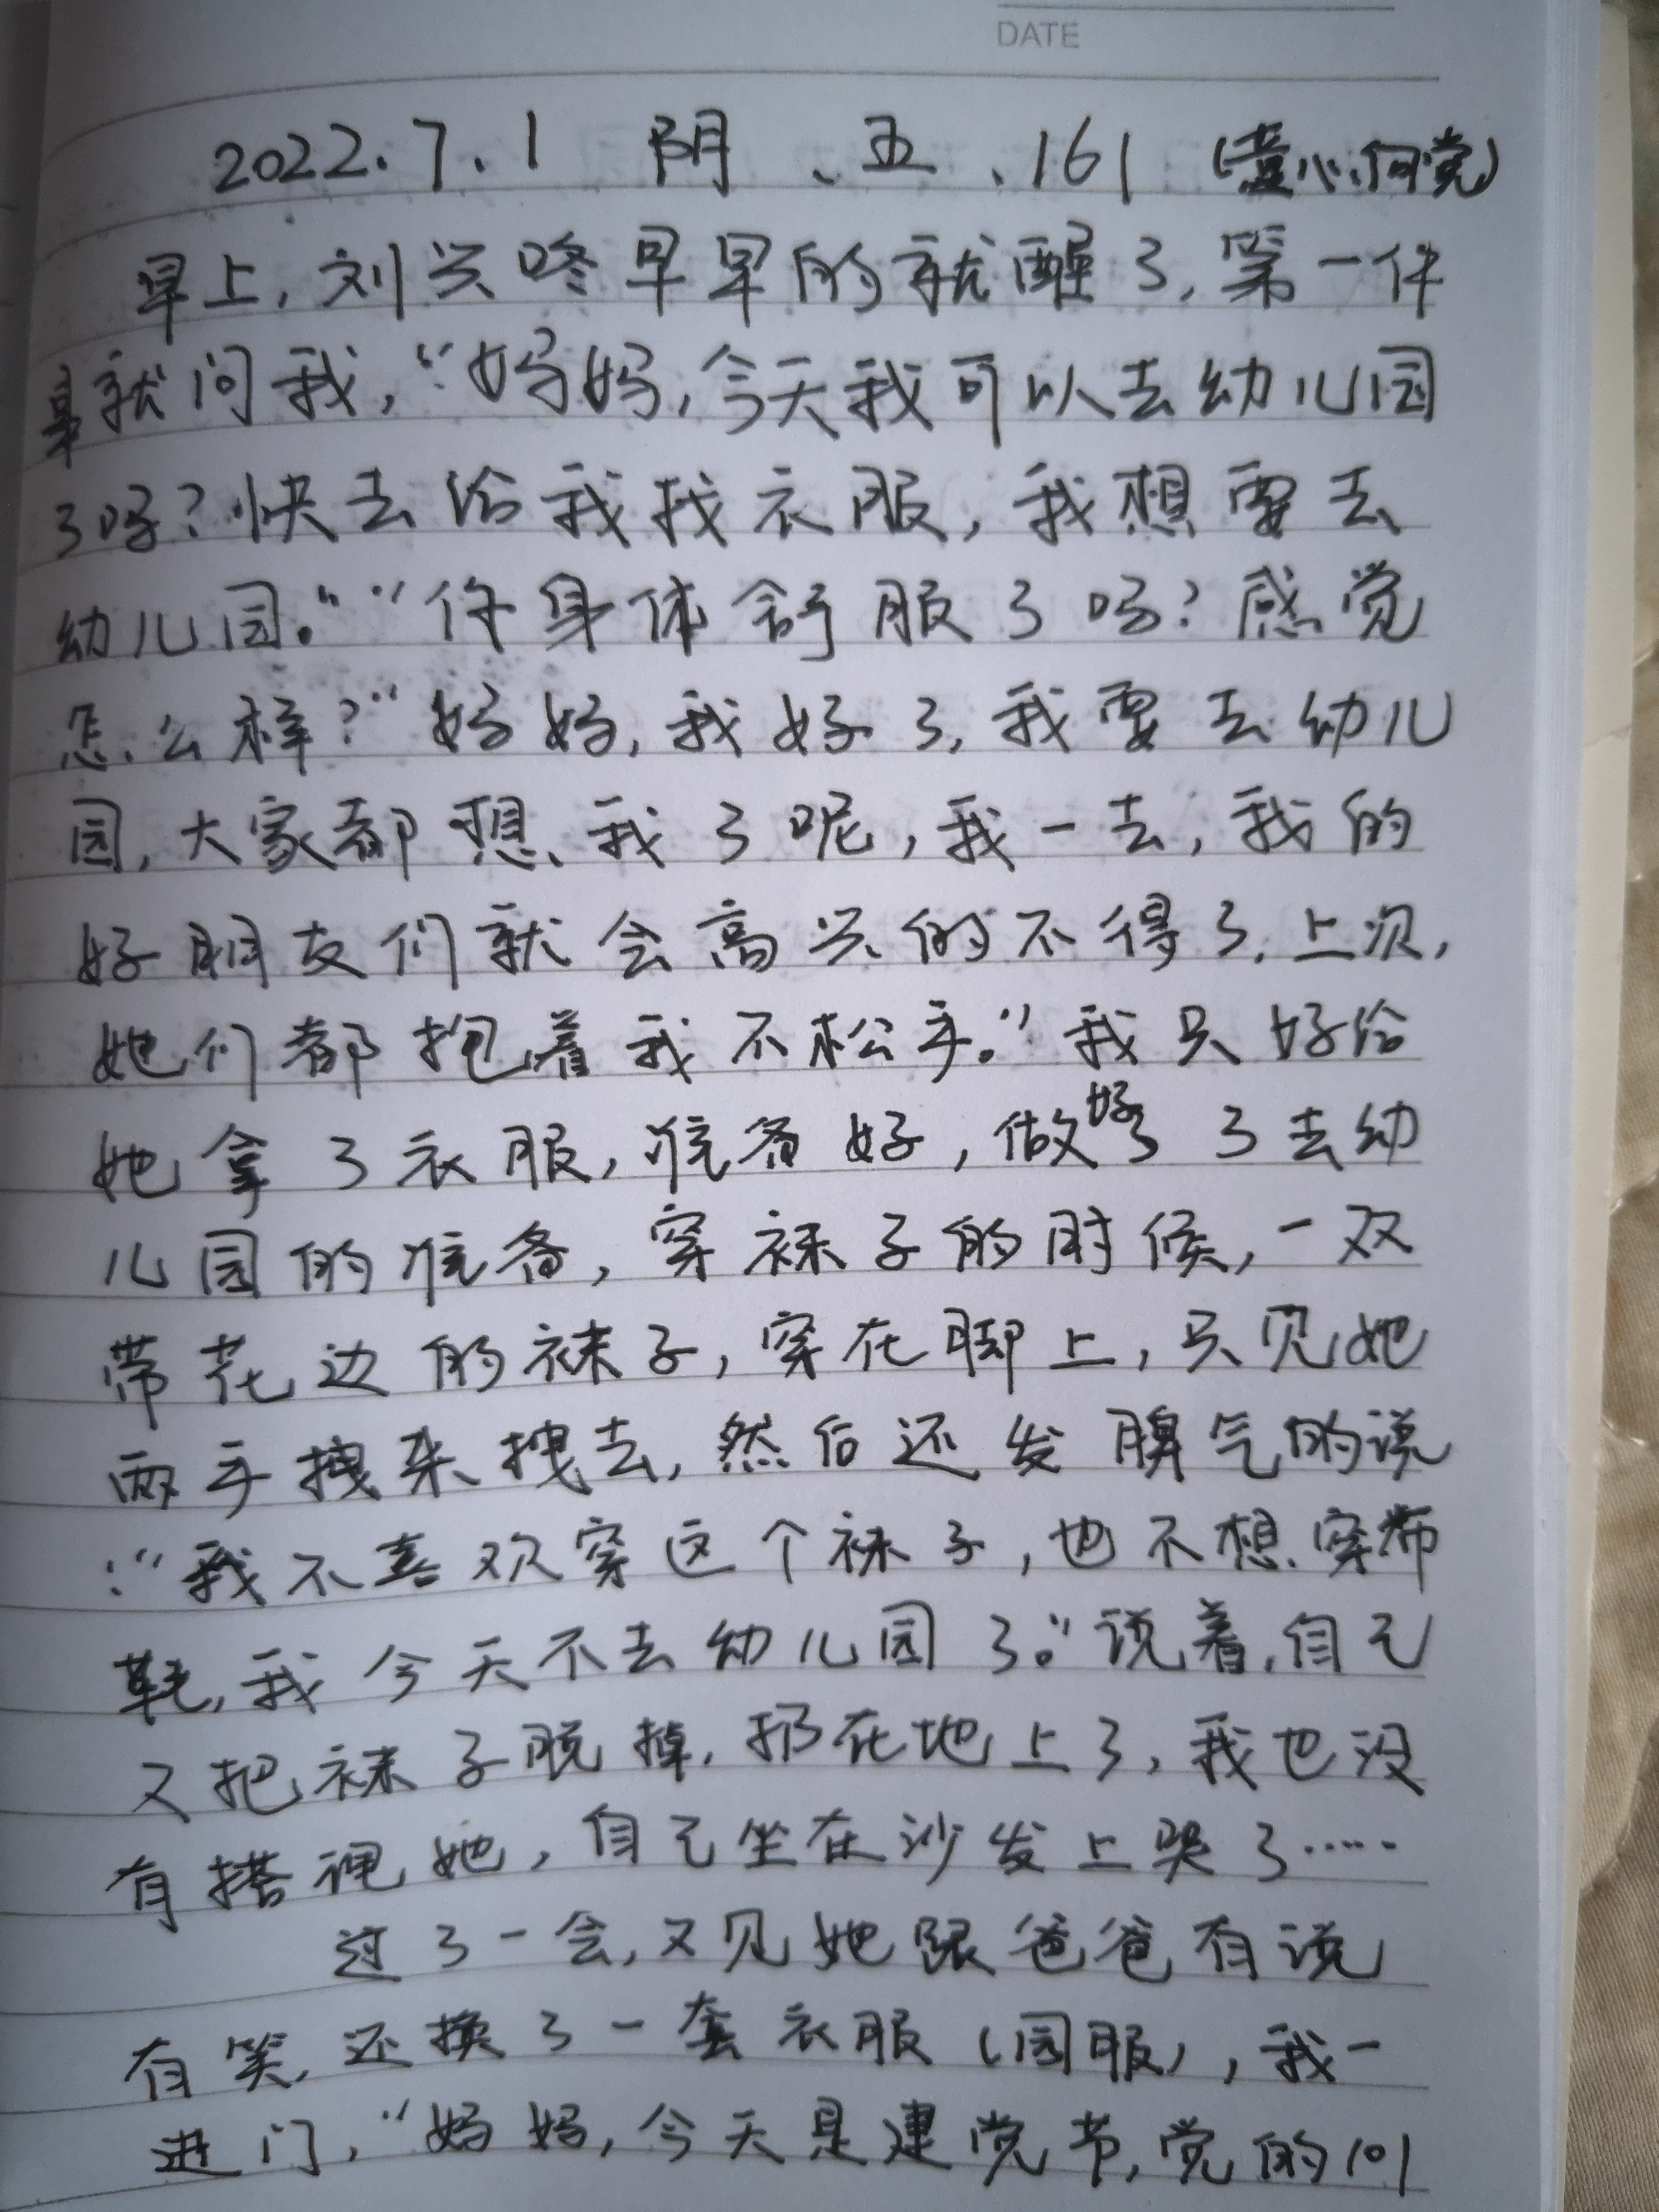 DATE
2022.7.1 阴、五、161 (童心向党)
早上,刘兴咚早早的就醒了,第一件
事就问我,“妈妈,今天我可以去幼儿园
了吗?快去给我找衣服,我想要去
幼儿园。”“你身体舒服了吗?感觉
怎么样?”“妈妈,我好了,我要去幼儿
园,大家都想我了呢,我一去,我的
好朋友们就会高兴的不得了,上次,
她们都抱着我不松手。”我只好给
她拿了衣服,准备好,做好了去幼
儿园的准备,穿袜子的时候,一双
带花边的袜子,穿在脚上,只见她
两手拽来拽去,然后还发脾气的说
:“我不喜欢穿这个袜子,也不想穿布
鞋,我今天不去幼儿园了。”说着,自己
又把袜子脱掉,扔在地上了,我也没
有搭理她,自己坐在沙发上哭了……
过了一会,又见她跟爸爸有说
有笑,还换了一套衣服(园服),我一
进门,“妈妈,今天是建党节,党的101